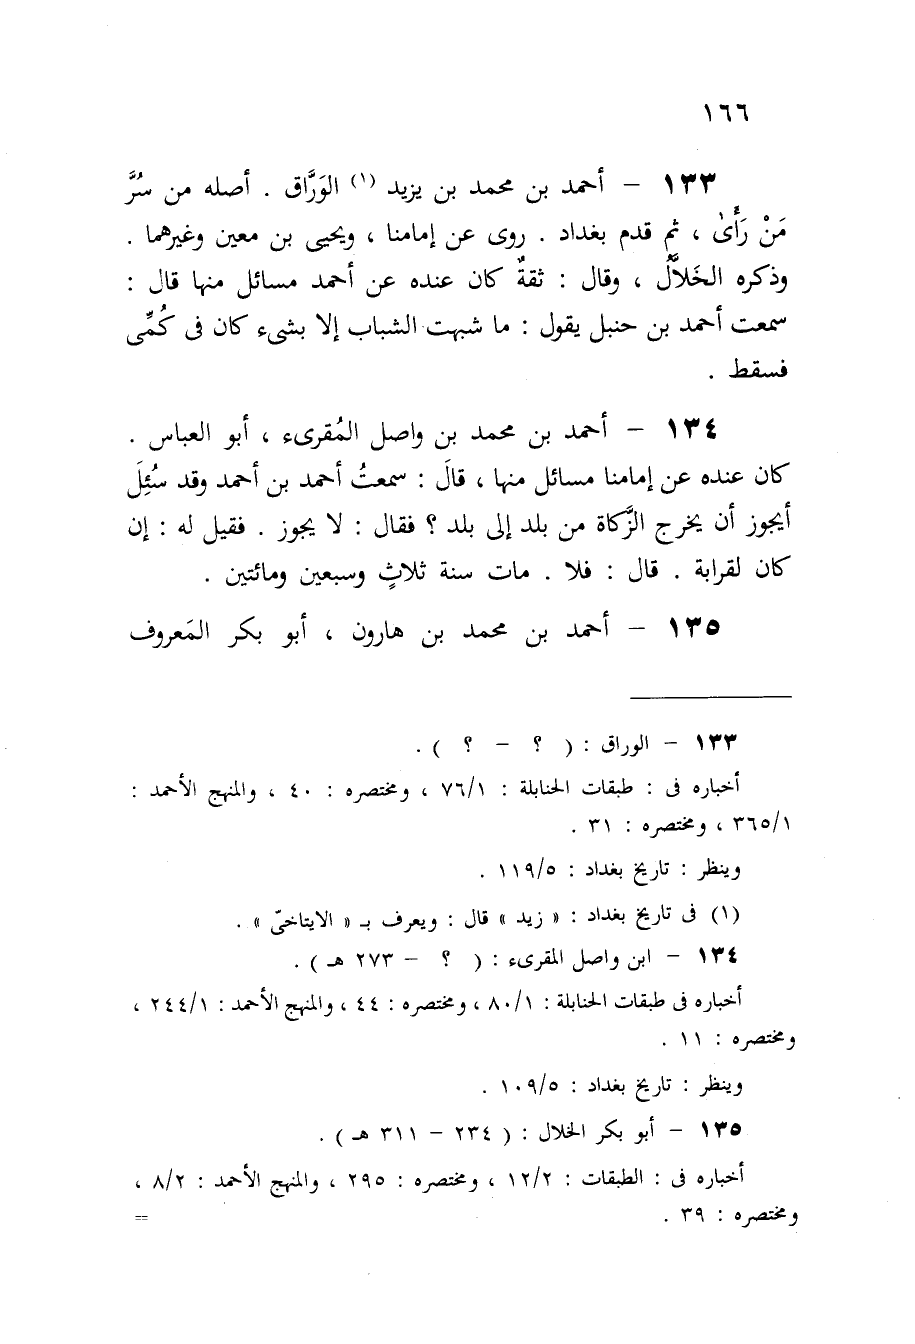 ١٦٦
١٣٣ – أحمد بن محمد بن يزيد (١) الوَرَّاق . أصله من سُرَّ
مَنْ رَأَىٰ ، ثم قدم بغداد . روى عن إمامنا ، ويحيى بن معين وغيرهما .
وذكره الخَلاَّلُ ، وقال : ثقةٌ كان عنده عن أحمد مسائل منها قال :
سمعت أحمد بن حنبل يقول : ما شبهت الشباب إلا بشىء كان فى كُمِّى
فسقط .
١٣٤ – أحمد بن محمد بن واصل المُقرىء ، أبو العباس .
كان عنده عن إمامنا مسائل منها ، قالَ : سمعتُ أحمد بن أحمد وقد سُئِلَ
أيجوز أن يخرج الزَّكاة من بلد إلى بلد ؟ فقال : لا يجوز . فقيل له : إن
كان لقرابة . قال : فلا . مات سنة ثلاثٍ وسبعين ومائتين .
١٣٥ – أحمد بن محمد بن هارون ، أبو بكر المَعروف
١٣٣ – الوراق : ( ؟ – ؟ ) .
أخباره فى : طبقات الحنابلة : ٧٦/١ ، ومختصره : ٤٠ ، والمنهج الأحمد :
٣٦٥/١ ، ومختصره : ٣١ .
وينظر : تاريخ بغداد : ١١٩/٥ .
(١) فى تاريخ بغداد : « زيد » قال : ويعرف بـ « الايتاخىّ » .
١٣٤ – ابن واصل المقرىء : ( ؟ – ٢٧٣ هـ ) .
أخباره فى طبقات الحنابلة : ٨٠/١ ، ومختصره : ٤٤ ، والمنهج الأحمد : ٢٤٤/١ ،
ومختصره : ١١ .
وينظر : تاريخ بغداد : ١٠٩/٥ .
١٣٥ – أبو بكر الخلال : ( ٢٣٤ – ٣١١ هـ ) .
أخباره فى : الطبقات : ١٢/٢ ، ومختصره : ٢٩٥ ، والمنهج الأحمد : ٨/٢ ،
ومختصره : ٣٩ . =